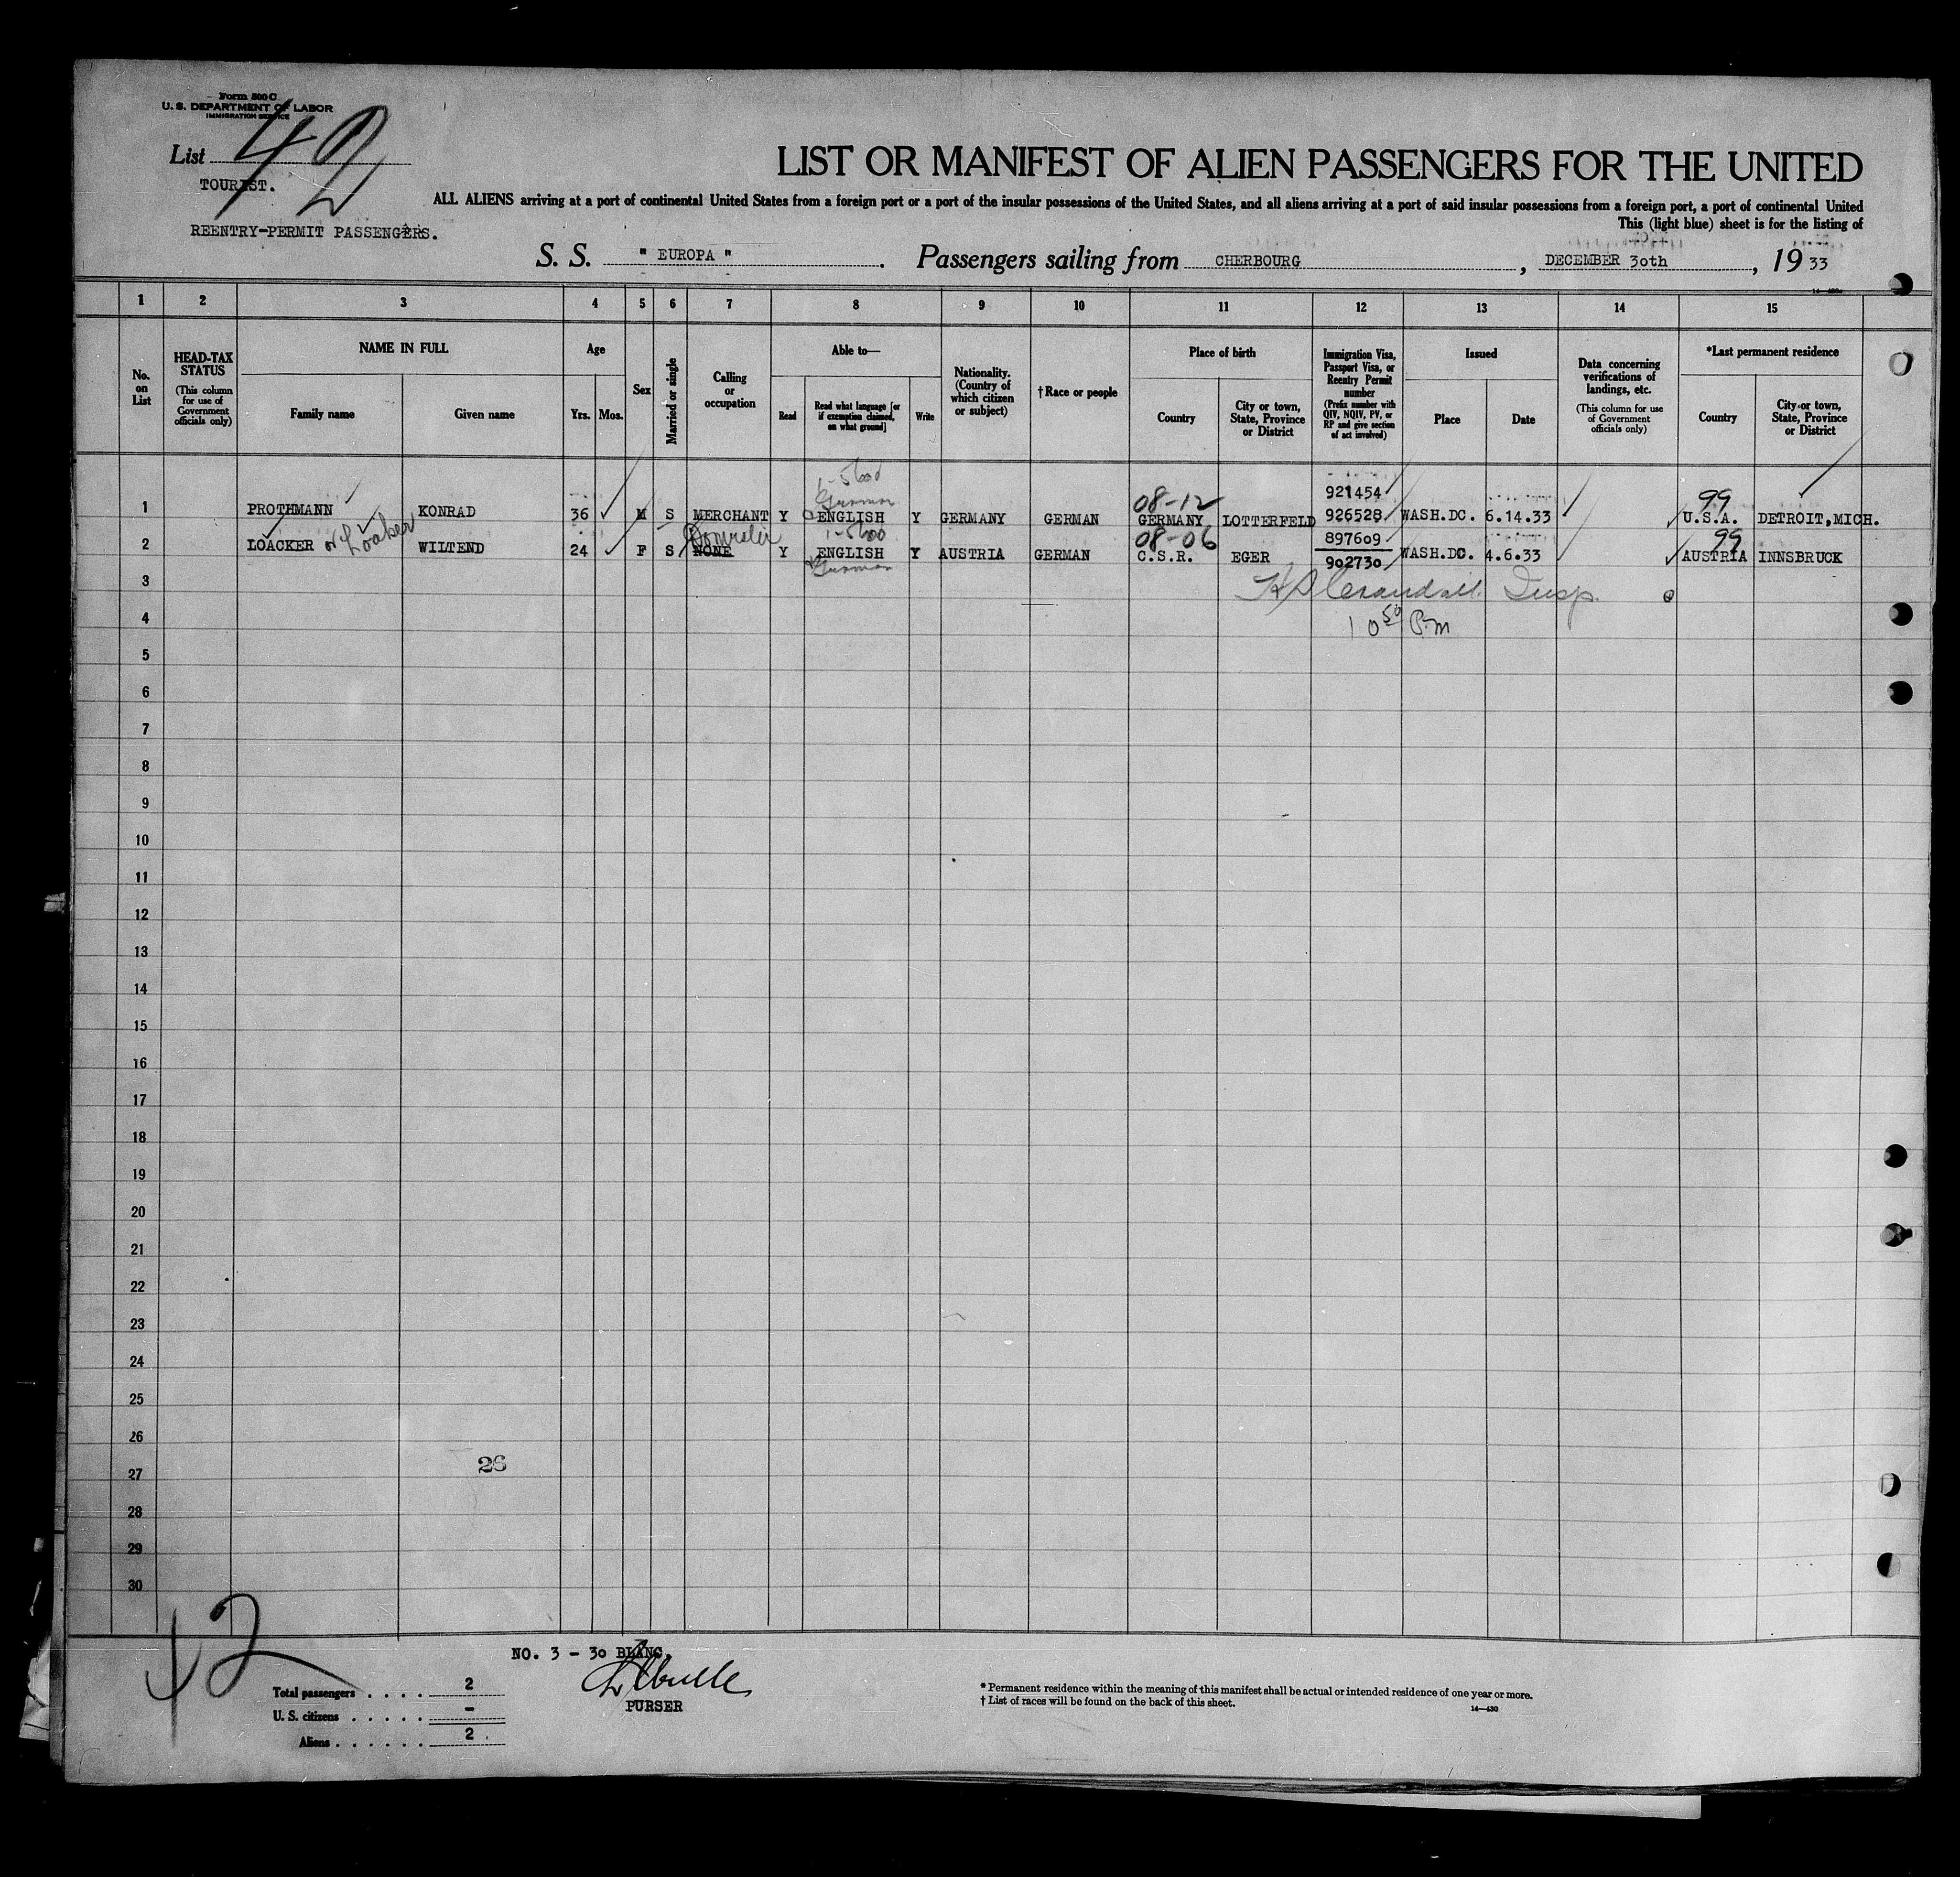 Form 500 C
U. S. DEPARTMENT OF LABOR
IMMIGRATION SERVICE
List 42
TOURIST.
REENTRY-PERMIT PASSENGERS.
LIST OR MANIFEST OF ALIEN PASSENGERS FOR THE UNITED
ALL ALIENS arriving at a port of continental United States from a foreign port or a port of the insular possessions of the United States, and all aliens arriving at a port of said insular possessions from a foreign port, a port of continental United
This (light blue) sheet is for the listing of
S. S. " EUROPA ". Passengers sailing from CHERBOURG, DECEMBER 30th, 1933
1 2 3 4 5 6 7 8 9 10 11 12 13 14 15
No. on List
HEAD-TAX STATUS (This column for use of Government officials only)
NAME IN FULL
Family name
Given name
Age
Yrs. Mos.
Sex
Married or single
Calling or occupation
Able to—
Read
Read what language [or if exemption claimed, on what ground]
Write
Nationality. (Country of which citizen or subject)
†Race or people
Place of birth
Country
City or town, State, Province or District
Immigration Visa, Passport Visa, or Reentry Permit number (Prefix number with QIV, NQIV, PV, or RP and give section of act involved)
Issued
Place
Date
Data concerning verifications of landings, etc. (This column for use of Government officials only)
*Last permanent residence
Country
City or town, State, Province or District
German 08-12 921454 99
1 PROTHMANN KONRAD 36 M S MERCHANT Y ENGLISH Y GERMANY GERMAN GERMANY LOTTERFELD 926528 WASH.DC. 6.14.33 U.S.A. DETROIT,MICH.
Domestic 1-5600 08-06 897609 99
2 LOACKER or Loaker WILTEND 24 F S NONE Y ENGLISH Y AUSTRIA GERMAN C.S.R. EGER 902730 WASH.DC. 4.6.33 AUSTRIA INNSBRUCK
German
3 Insp.
4 10 50 P.m
5
6
7
8
9
10
11
12
13
14
15
16
17
18
19
20
21
22
23
24
25
26
26
27
28
29
30
42
NO. 3 - 30 BLANC.
PURSER
Total passengers . . . . 2
U. S. citizens . . . . . -
Aliens . . . . . . 2
* Permanent residence within the meaning of this manifest shall be actual or intended residence of one year or more.
† List of races will be found on the back of this sheet.
14—430